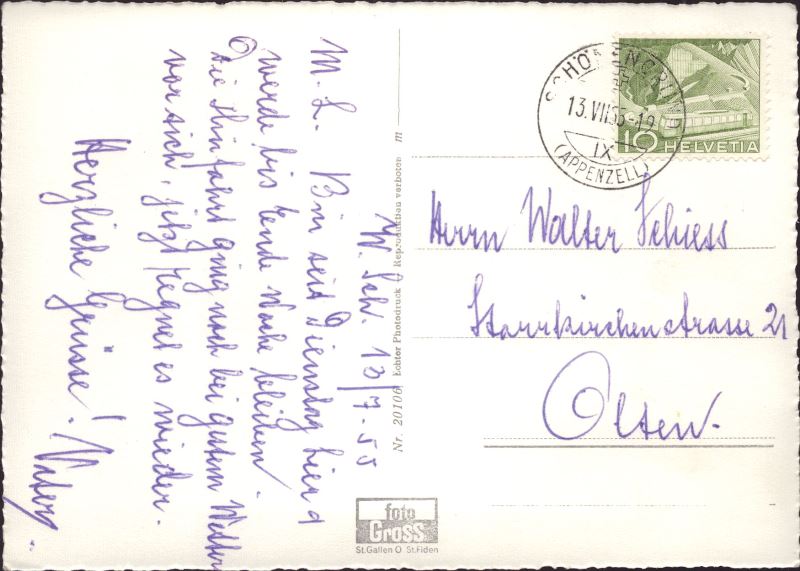 W. Sch. 13/7. 55
M. L. Bin seit Dienstag hier &
werde bis Ende Woche bleiben.
Die Hinfahrt ging noch bei gutem Wetter
vor sich, jetzt regnet es wieder.
Herzliche Grüsse! Vater.
Nr. 20106 Echter Photodruck Reproduktion verboten m
foto
Gross
St.Gallen O St.Fiden
SCHÖNENGRUND
13.VII.55-19
IX
(APPENZELL)
10 HELVETIA
Herrn Walter Schiess
Starrkirchenstrasse 21
Olten.